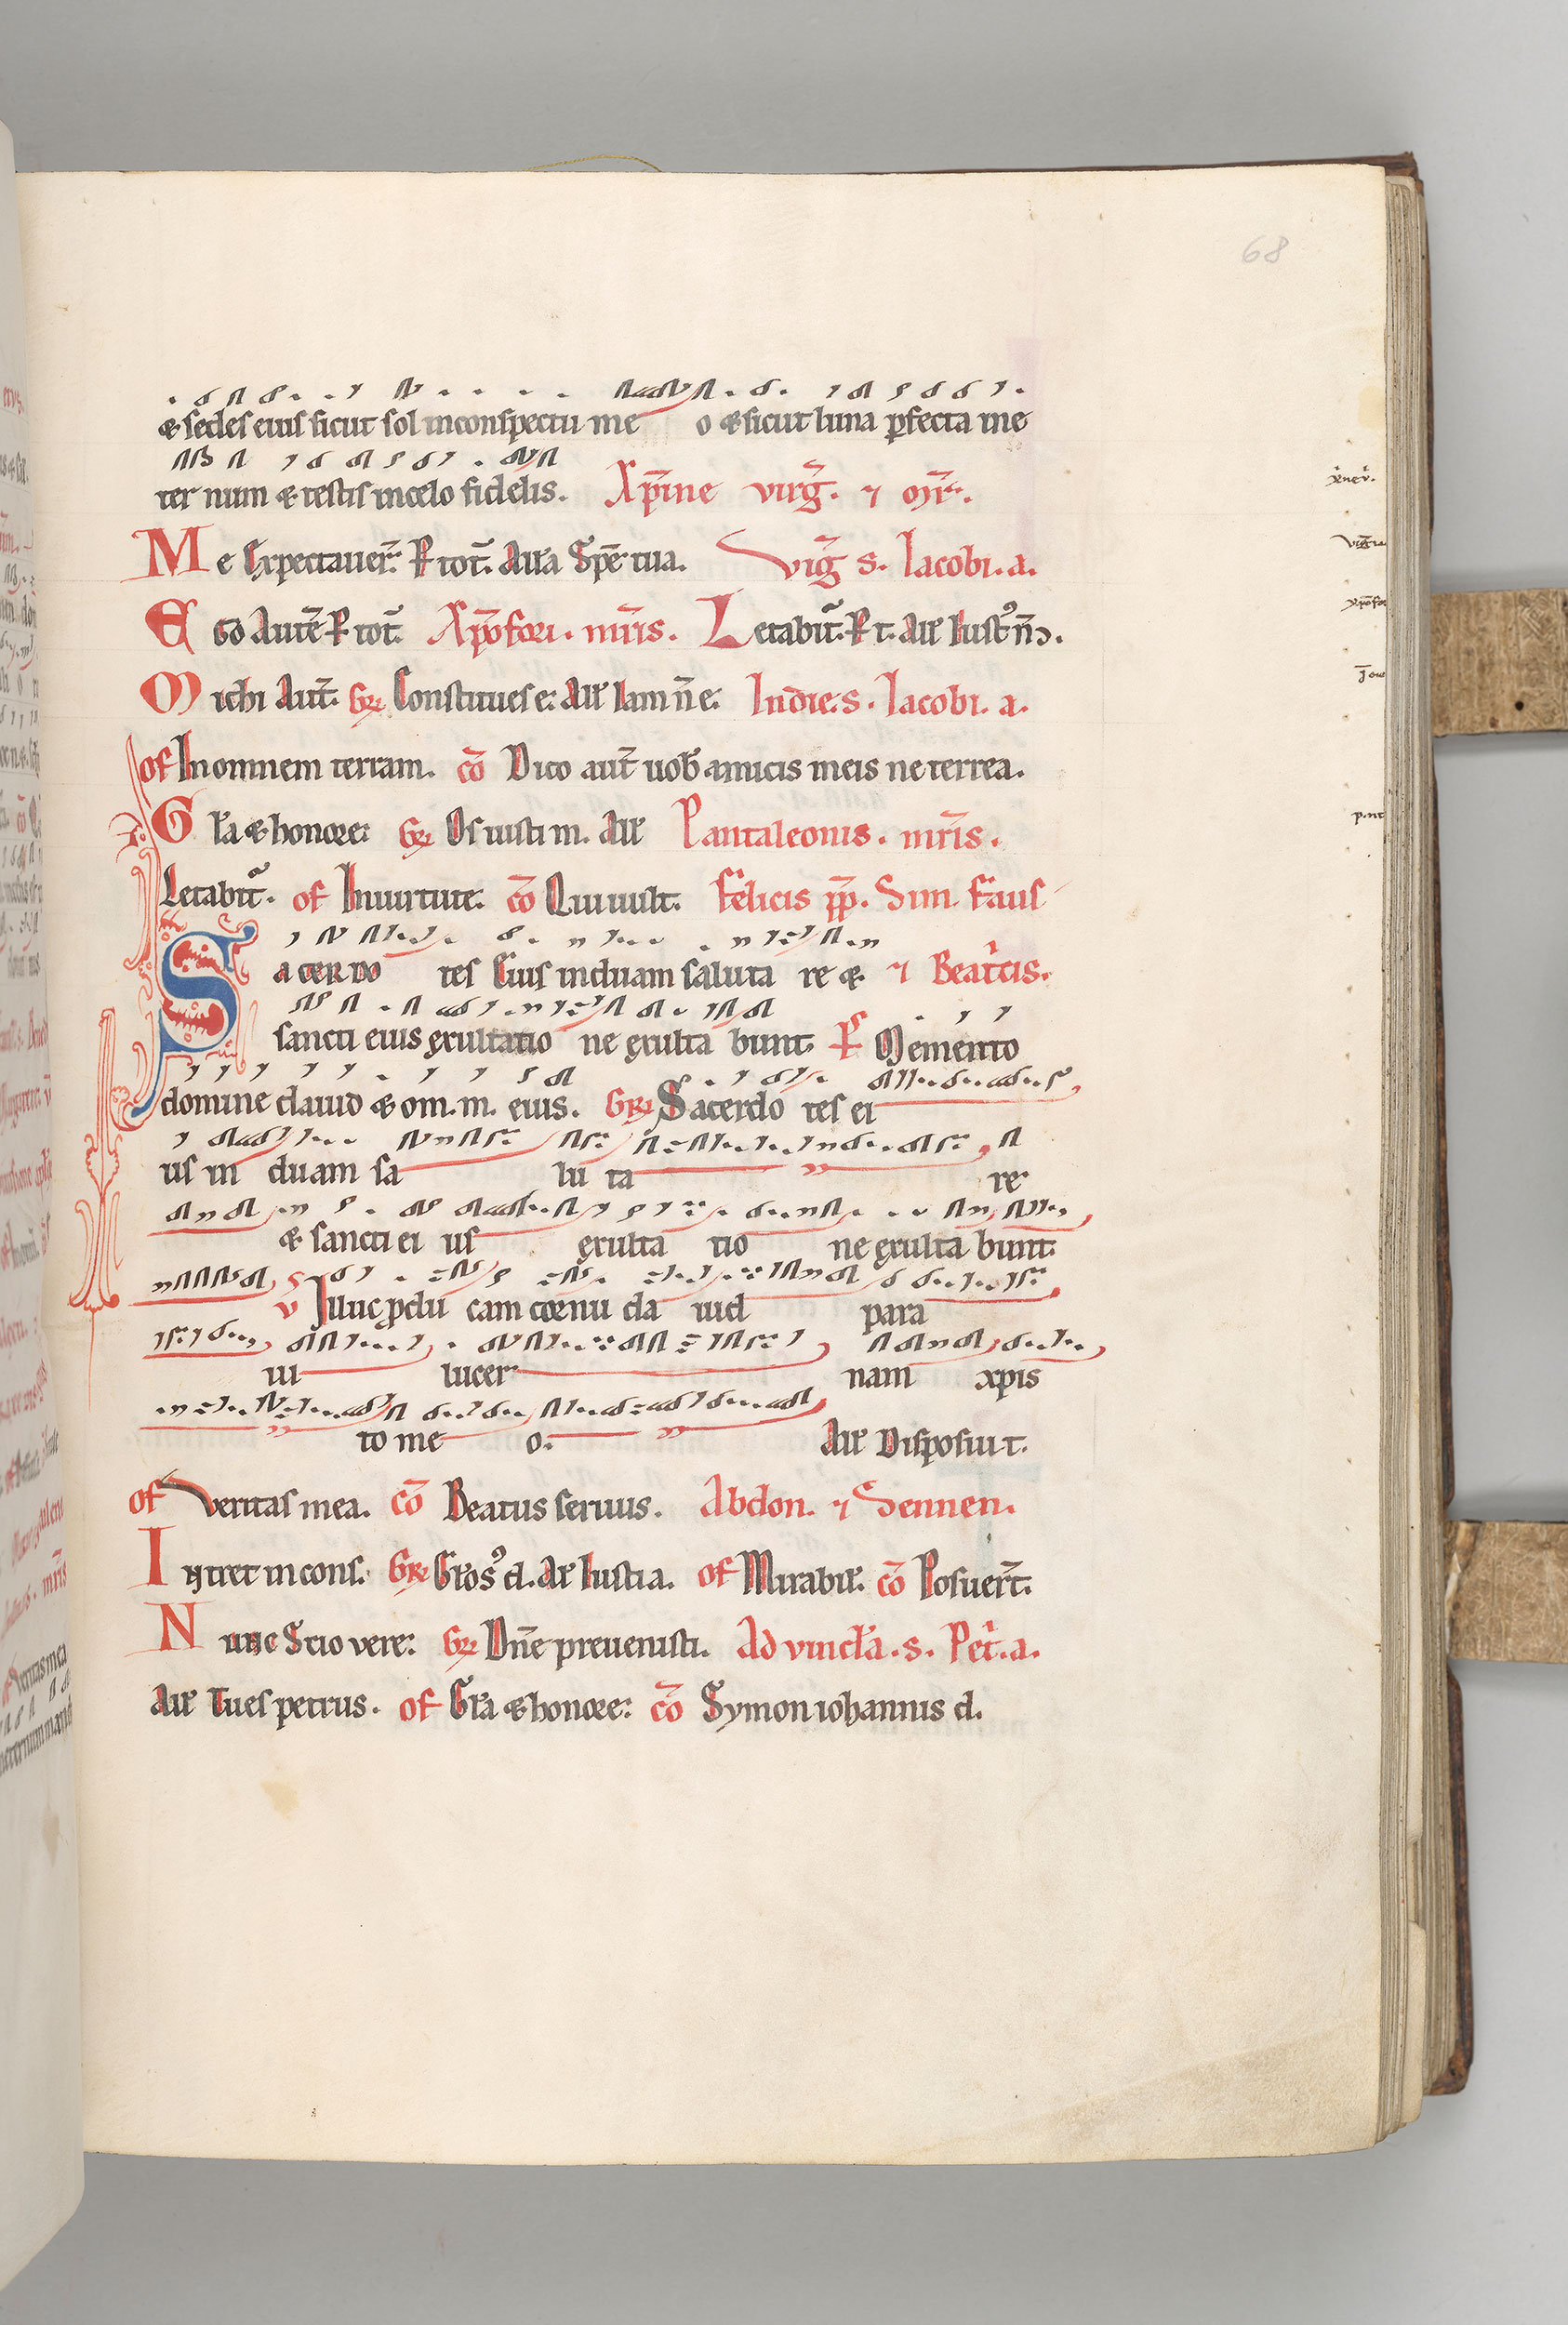 68
& sedes eius sicut sol inconspectu me o & sicut luna pfecta me
ter num & testis incelo fidelis. Xp̄ine virḡ. ⁊ mr̄.
Me Expectauer̄. P̄ tot̄. Aɫɫa Spē tua. Viḡ s. Iacobi. a.
Ego Autē P̄ tot̄. Xp̄ofori. mr̄is. Letabit̄. P̄ t. Aɫɫ Iust᷒ n̄
Michi Aut̄. Gr̄ Constitues e: Aɫɫ Iam n̄ e: Indie. s. Iacobi. a.
of In omnem terram. cō Dico aut̄ uob̄ amicis meis ne terrea.
Gɫa & honore: Gr̄ Os iusti m. Aɫɫ Pantaleonis. mr̄is.
Letabit̄. of Inuirtute: cō Qui uult. Felicis pp̄. Sim. Faus
Sacerdo tes Eius induam saluta re & ⁊ Beat̄cis.
sancti eius exultatio ne exulta bunt. P̄s Memento
domine dauid & om. m. eius. GR̄ Sacerdo tes ei
us in duam sa lu ta re
& sancti ei us exulta tio ne exulta bunt.
V Illuc pdu cam cornu da uid para
ui lucer nam xpis
to me o. Aɫɫ Disposui t.
of Veritas mea. cō Beatus seruus. Abdon. ⁊ Sennen.
Intret in cons. Gr̄ Gɫos᷒ d. Aɫɫ Iusti a. of Mirabiɫ. cō Posuer̄t.
Nunc Scio vere: Gr̄ Dn̄e preuenisti. Ad vincɫa. s. Pet̄. a.
Aɫɫ Tu es petrus. of Gɫa & honore: cō Symon iohannis d.